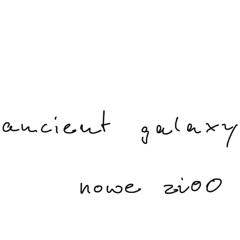 ancient galaxy
nowe zioo